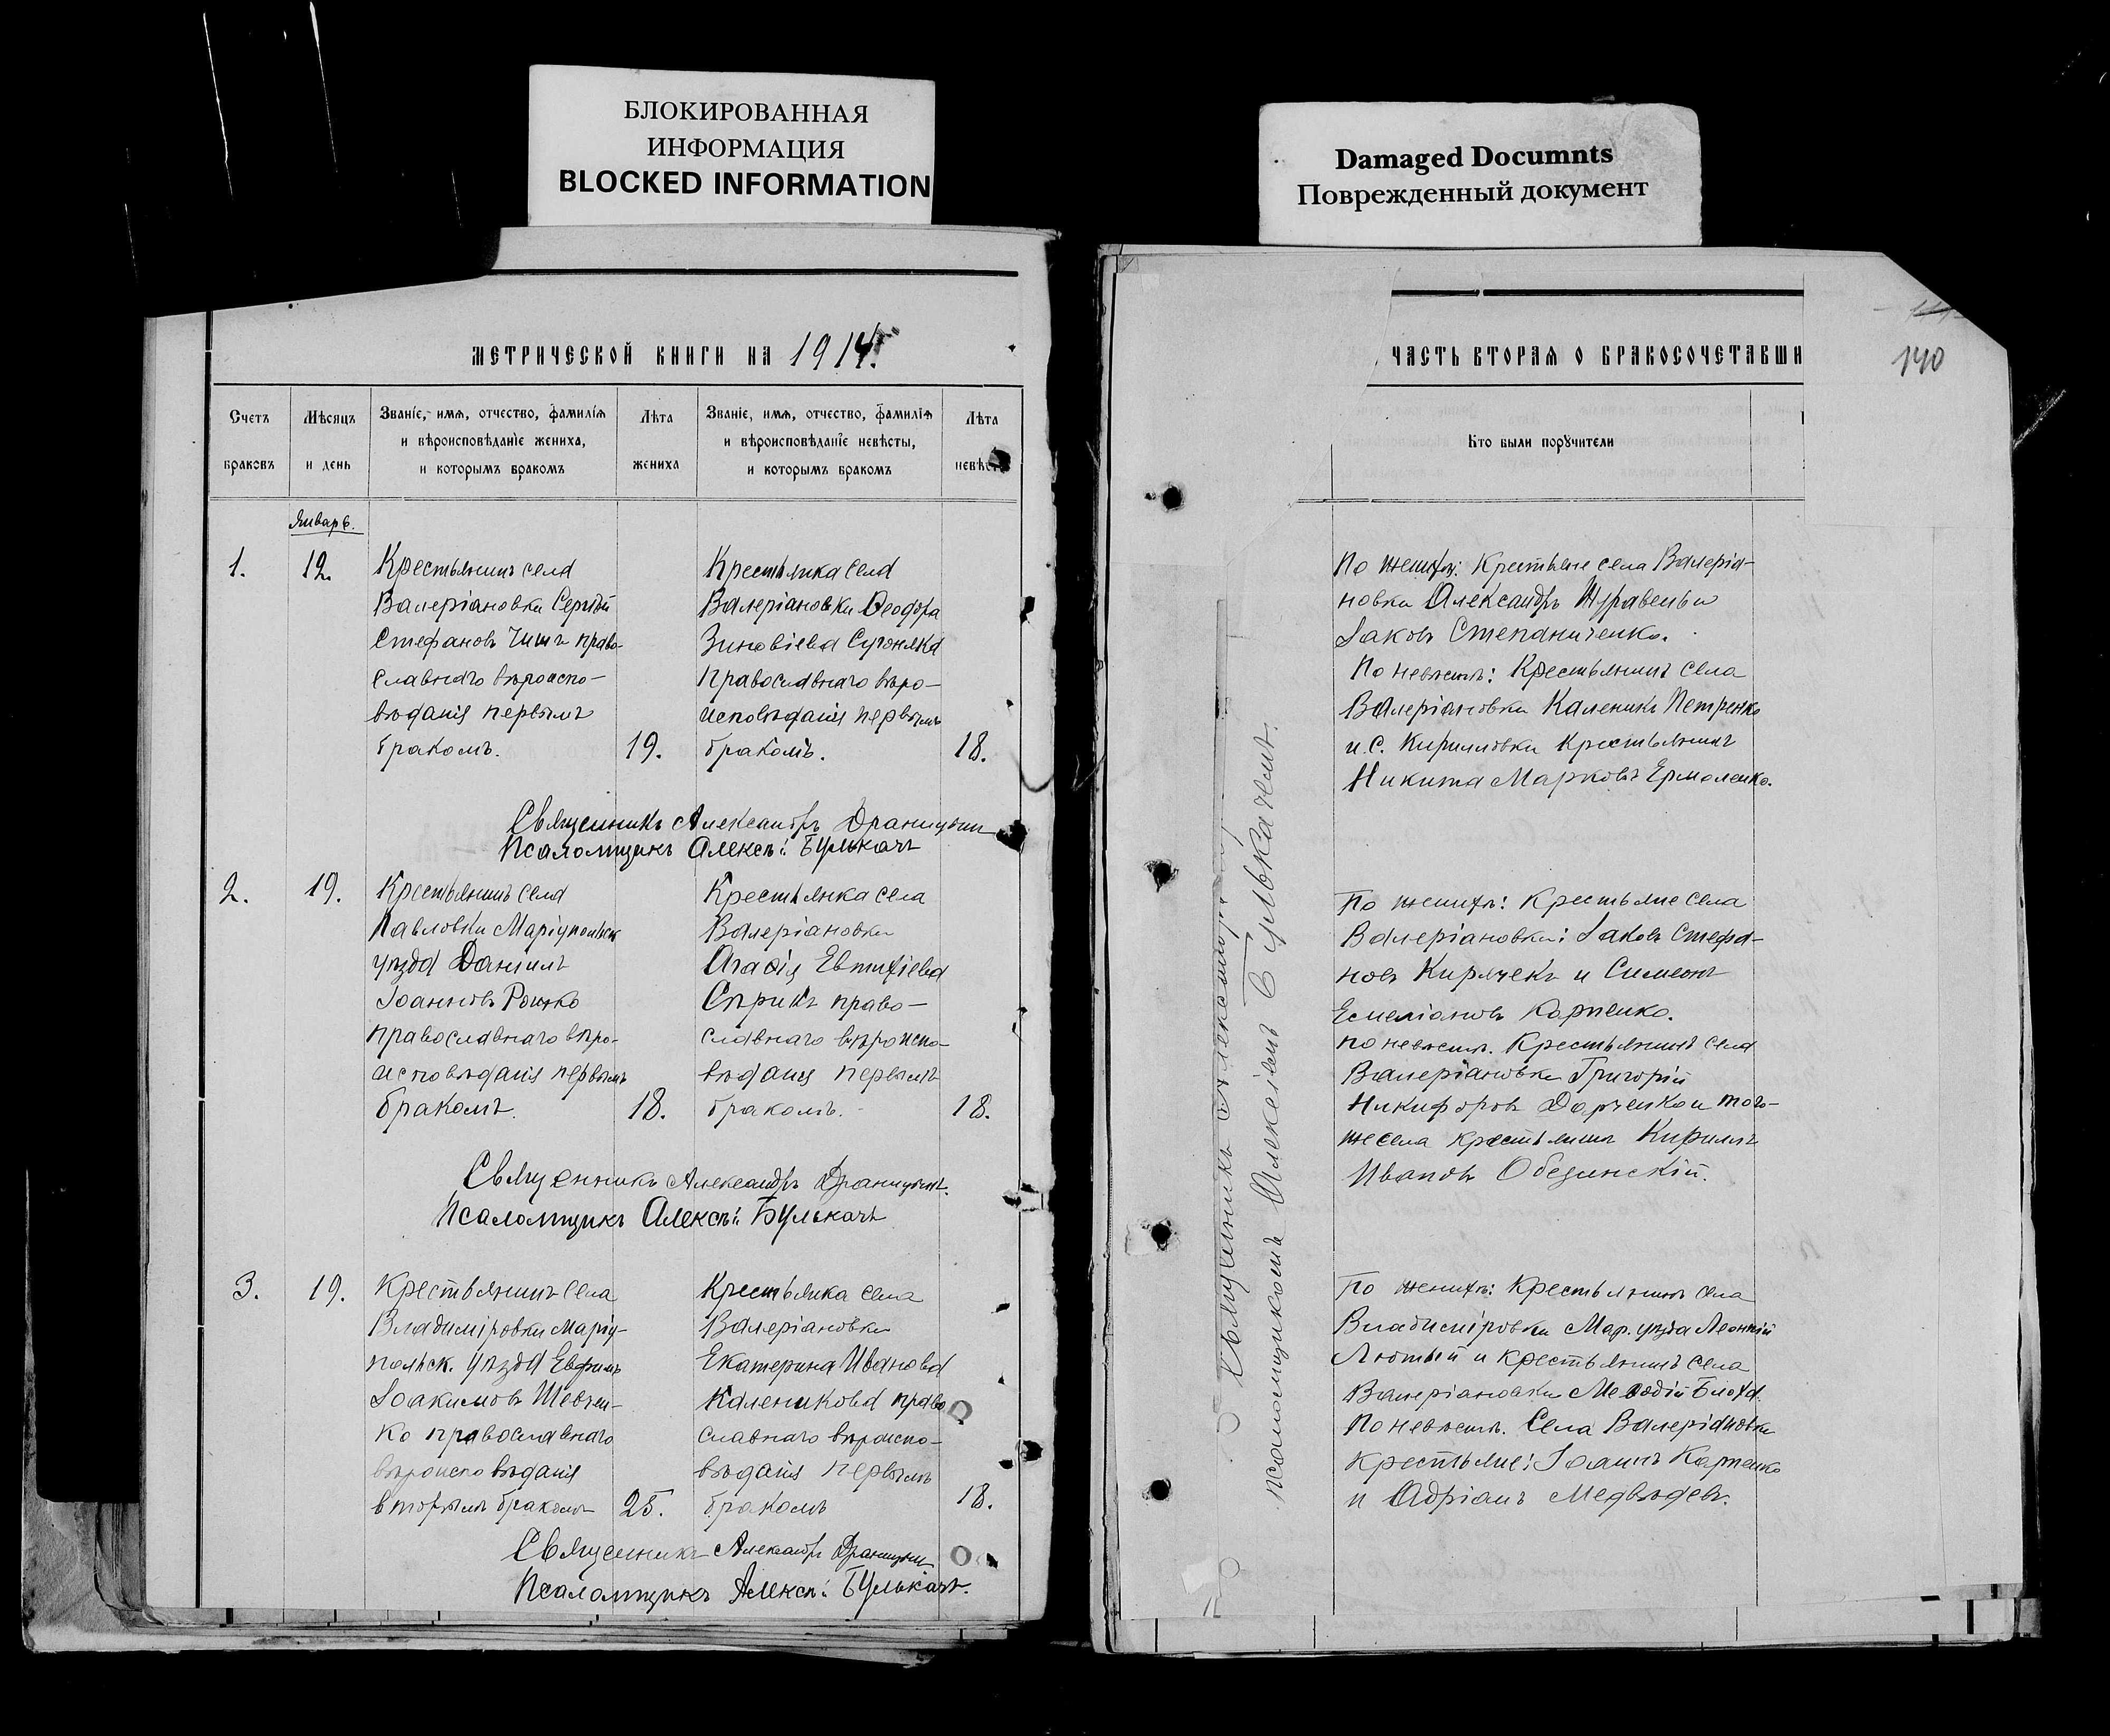 БЛОКИРОВАННАЯ
ИНФОРМАЦИЯ
BLOCKED INFORMATION
МЕТРИЧЕСКОЙ КНИГИ НА 1914
Счетъ
браковъ
Мѣсяцъ
и день
Званіе, имя, отчество, фамилія
и вѣроисповѣданіе жениха,
и которымъ бракомъ
Лѣта
жениха
Званіе, имя, отчество, фамилія
и вѣроисповѣданіе невѣсты,
и которымъ бракомъ
Лѣта
невѣс
Январь.
1.
12.
Крестьянинъ села
Валеріановки Сергѣй
Стефановъ право-
славнаго вѣроиспо-
вѣданія первымъ
бракомъ.
19.
Крестьянка села
Валеріановки Ѳеодора
Зиновіева Сугоняка
православнаго вѣро-
исповѣданія первымъ
бракомъ.
18.
Священникъ Александръ
Псаломщикъ Алексѣй Булькачъ
2.
19.
Крестьянинъ села
Павловки Маріупольск
уѣзда Даніилъ
Іоанновъ
православнаго вѣро-
исповѣданія первымъ
бракомъ.
18.
Крестьянка села
Валеріановки
Агафія Евтихіева
Сѣрикъ право-
славнаго вѣроиспо-
вѣданія первымъ
бракомъ.
18.
Священникъ Александръ
Псаломщикъ Алексѣй Булькачъ
3.
19.
Крестьянинъ села
Владиміровки Маріу-
польск. уѣзда Евфимъ
Іоакимовъ Шевчен-
ко православнаго
вѣроисповѣданія
вторымъ бракомъ
25.
Крестьянка села
Валеріановки
Екатерина Иванова
Каленикова право
славнаго вѣроиспо-
вѣданія первымъ
бракомъ
18.
Священникъ Александръ
Псаломщикъ Алексѣй Булькачъ.
Damaged Documnts
Поврежденный документ
140
ЧАСТЬ ВТОРАЯ О БРАКОСОЧЕТАВШИ
Кто были поручители
По женихѣ: Крестьяне села Валеріа-
новки Александръ Журавель и
Іаковъ Степаниченко.
По невѣстѣ: Крестьянинъ села
Валеріановки Каленикъ Петренко
и с. Кирилловки крестьянинъ
Никита Марковъ Ермоленко.
По женихѣ: Крестьяне села
Валеріановки: Іаковъ Стефа-
новъ Кирячекъ и Симеонъ
Емеліановъ Карпенко.
по невѣстѣ. Крестьянинъ села
Валеріановки Григорій
Никифоровъ и того-
же села крестьянинъ Кириллъ
Ивановъ Обединскій.
По женихѣ: Крестьянинъ села
Владиміровки Мар. уѣзда Леонтій
Лютый и крестьянинъ села
Валеріановки Меѳодій
По невѣстѣ. Села Валеріановки
крестьяне: Іоаннъ Карпенко
и Адріанъ Медвѣдевъ.
псаломщикомъ Алексіемъ Булькачемъ.